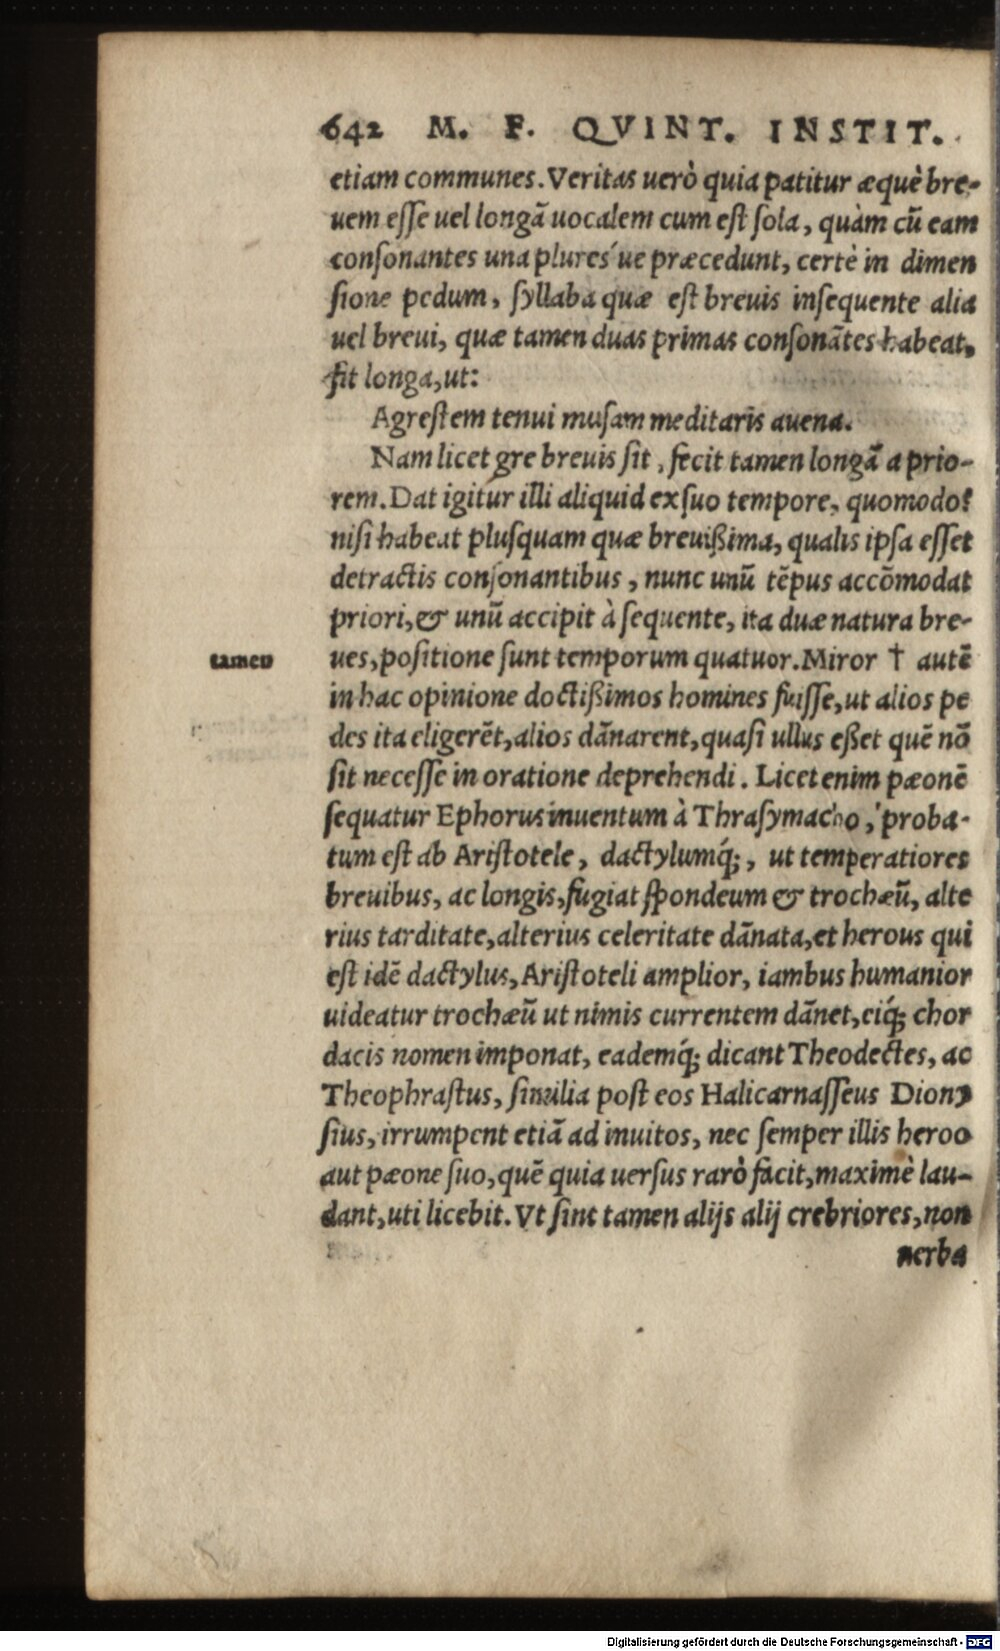 642 M. F. QVINT. INSTIT.
etiam communes. Veritas uerò quia patitur æquè bre-
uem esse uel longā uocalem cum est sola, quàm cū eam
consonantes una plures´ue præcedunt, certè in dimen
sione pedum, syllaba quæ est breuis insequente alia
uel breui, quæ tamen duas primas consonātes habeat,
fit longa, ut:
Agrestem tenui musam meditaris auena.
Nam licet gre breuis sit, fecit tamen longā a prio-
rem. Dat igitur illi aliquid ex suo tempore, quomodo?
nisi habeat plusquam quæ breuißima, qualis ipsa esset
detractis consonantibus, nunc unū tēpus accōmodat
priori, & unū accipit à sequente, ita duæ natura bre-
tamen
ues, positione sunt temporum quatuor. Miror † autē
in hac opinione doctißimos homines fuisse, ut alios pe
des ita eligerēt, alios dānarent, quasi ullus eßet quē nō
sit necesse in oratione deprehendi. Licet enim pæonē
sequatur Ephorus inuentum à Thrasymacho, proba-
tum est ab Aristotele, dactylumq́;, ut temperatiores
breuibus, ac longis, fugiat spondeum & trochæū, alte
rius tarditate, alterius celeritate dānata, et herous qui
est idē dactylus, Aristoteli amplior, iambus humanior
uideatur trochæū ut nimis currentem dānet, eiq́; chor
dacis nomen imponat, eademq́; dicant Theodectes, ac
Theophrastus, similia post eos Halicarnasseus Diony
sius, irrumpent etiā ad inuitos, nec semper illis heroo
aut pæone suo, quē quia uersus rarò facit, maximè lau-
dant, uti licebit. Vt sint tamen alijs alij crebriores, non
uerba
Digitalisierung gefördert durch die Deutsche Forschungsgemeinschaft - DFG